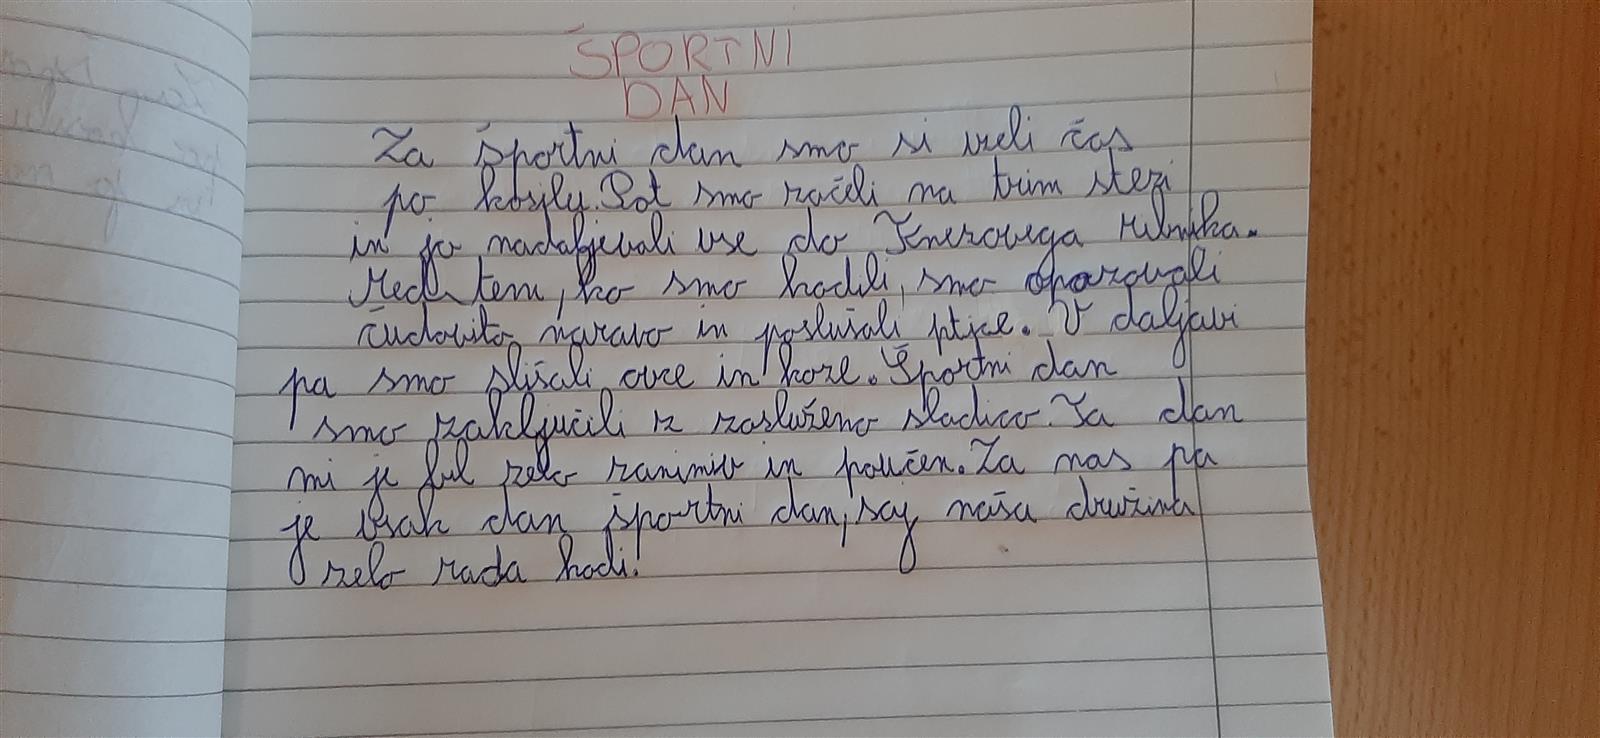 ŠPORTNI
DAN
Za športni dan smo si vzeli čas
po kosilu. Pot smo začeli na trim stezi
in jo nadaljevali vse do Knezovega ribnika.
Med tem, ko smo hodili, smo opazovali
čudovito naravo in poslušali ptice. V daljavi
pa smo slišali ovce in koze. Športni dan
smo zaključili z zasluženo sladico. Ta dan
mi je bil zelo zanimiv in poučen. Za nas pa
je vsak dan športni dan, saj naša družina
zelo rada hodi.